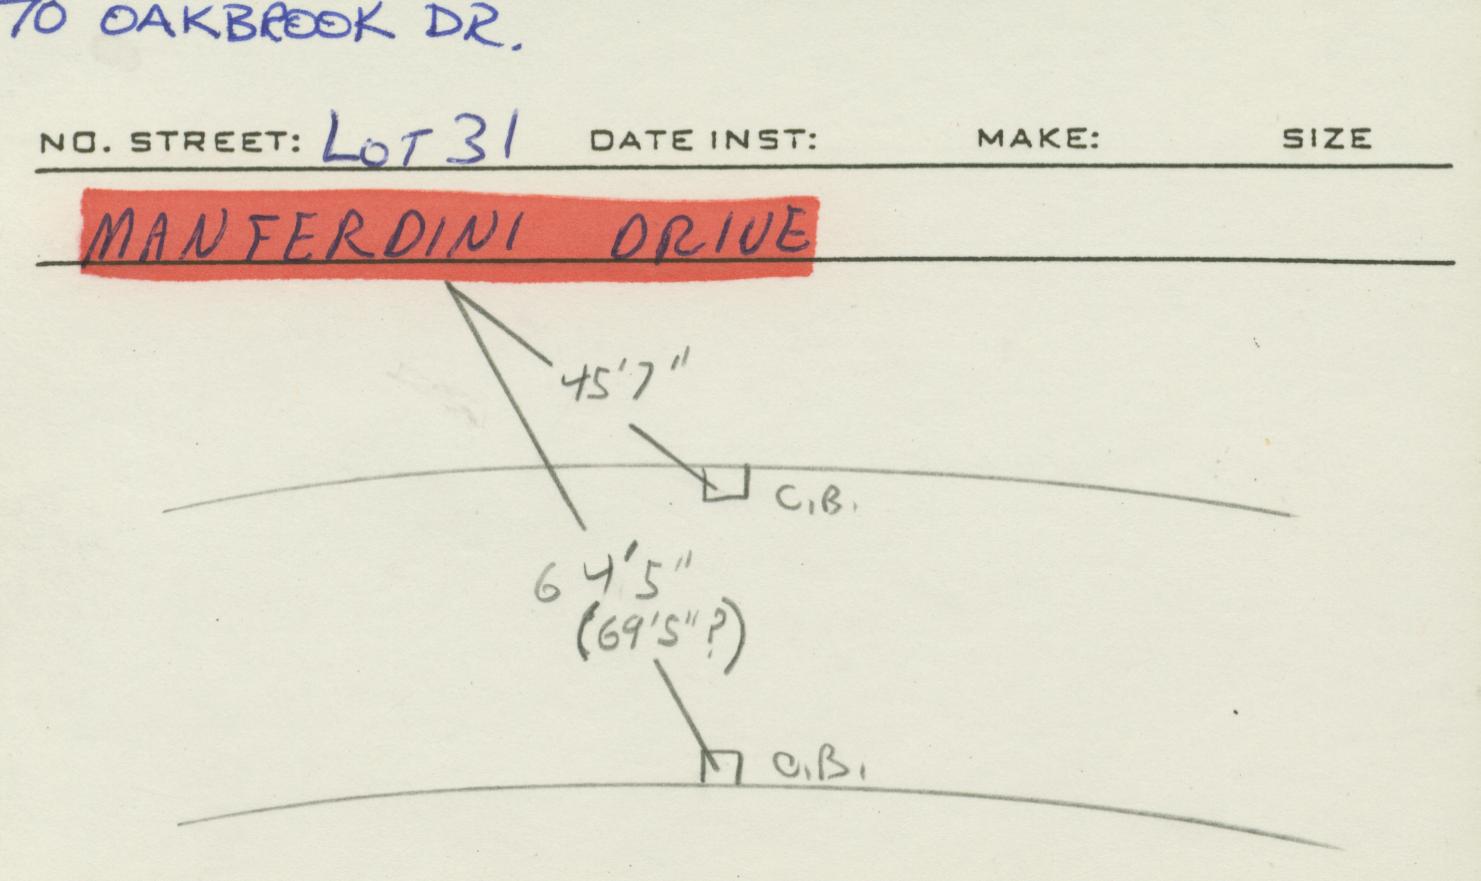 TO OAKBROOK DR.
NO. STREET: LOT 31 DATE INST: MAKE: SIZE
MANFERDINI DRIVE
45'7"
C.B.
64'5"
(69'5"?)
C.B.